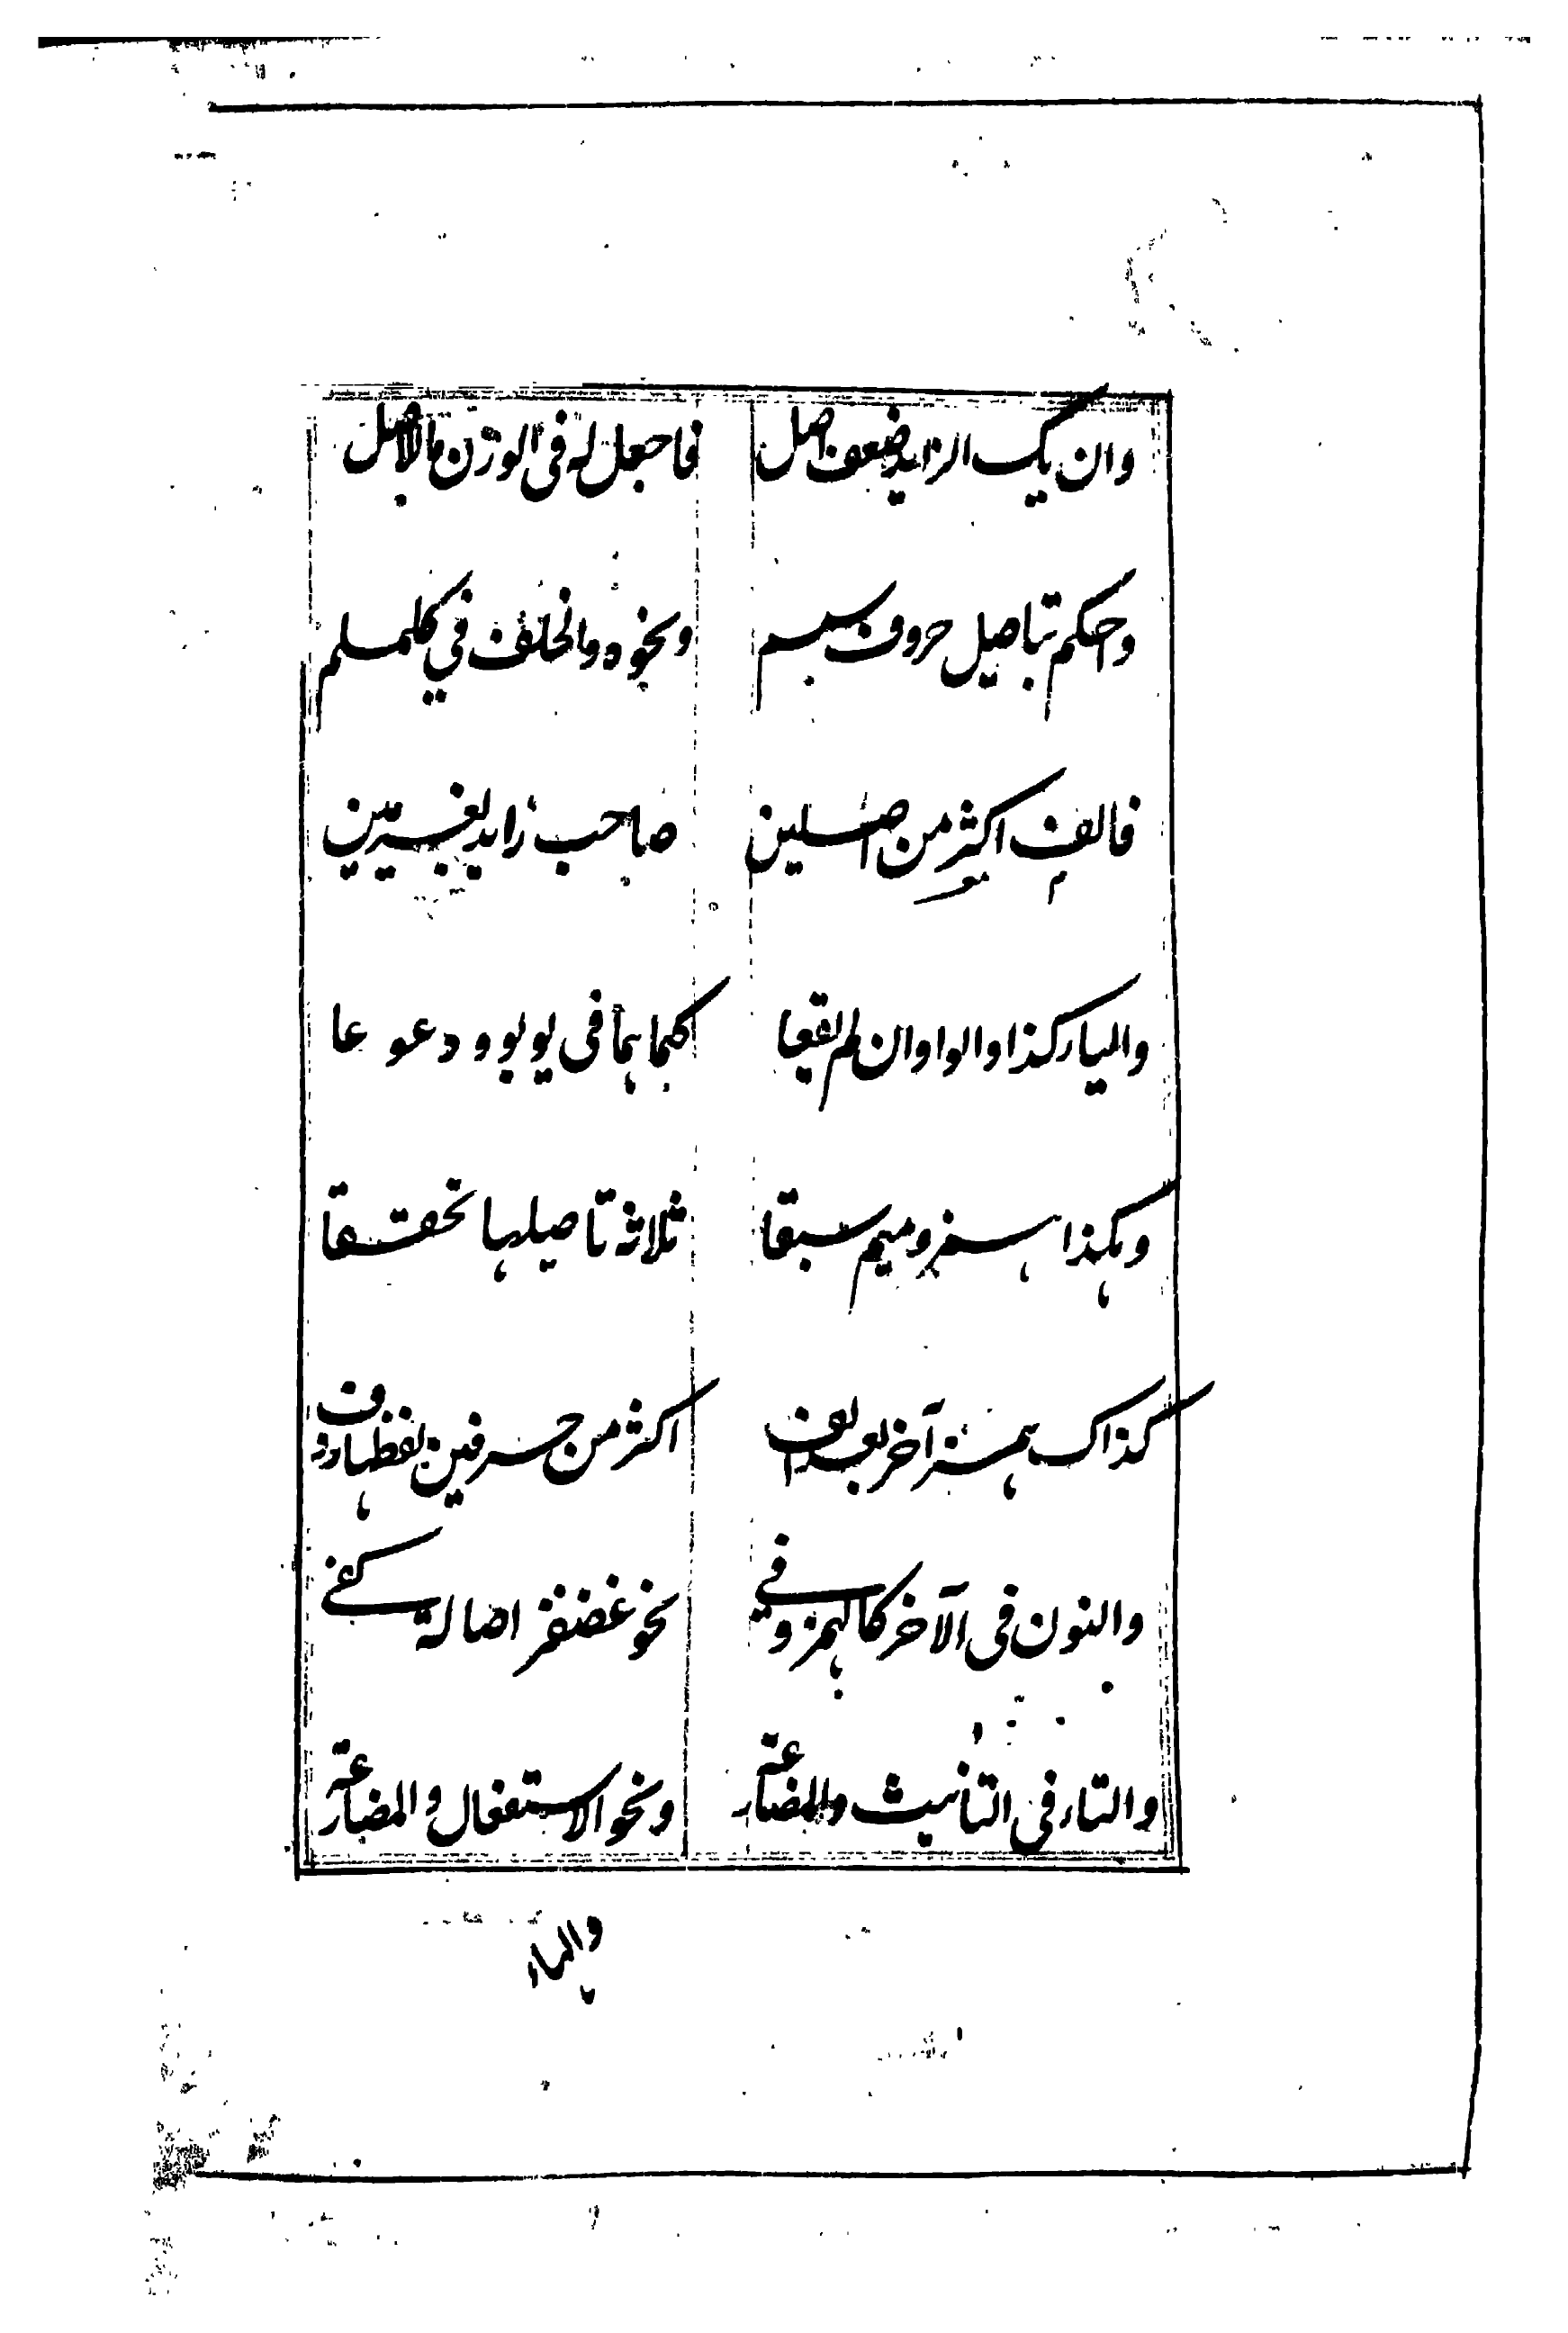 وان يك الزايد ضعف اصل فاجعل له في الوزن ما للاصل
واحكم بتاصيل حروف سمسم ونحوه والخلف في كلملم
فالف اكثر من اصلين صاحب زايد بغير مين
واليا كذا والواو ان لم يقعا كما هما في يويو ووعوعا
وهكذا همز وميم سبقا ثلاثة تاصيلها تحققا
كذاك همز آخر بعد الف اكثر من حرفين لفظها ردف
والنون في الآخر كالهمز وفي نحو غضنفر اصالة كفي
والتاء في التأنيث والمضارعة ونحو الاستفعال والمضارعة
والهاء